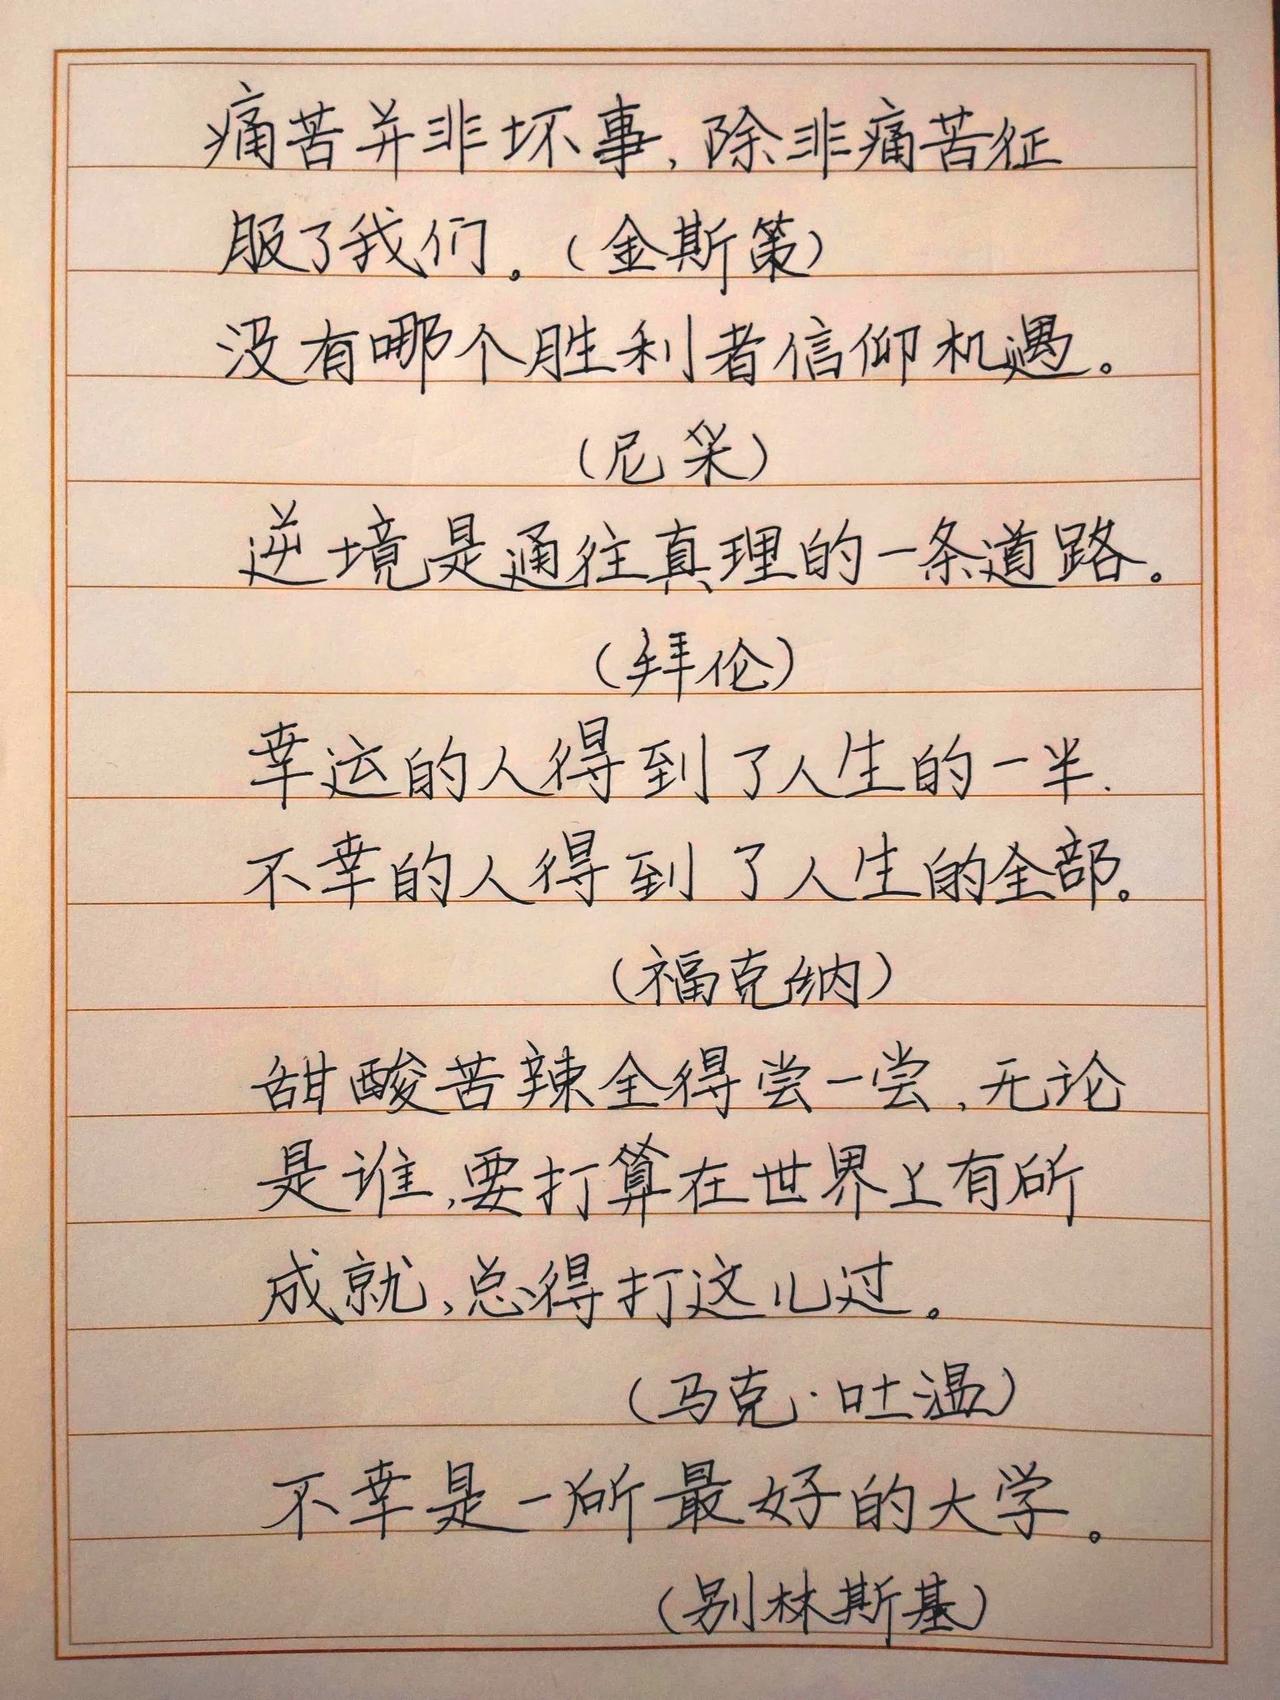 痛苦并非坏事,除非痛苦征
服了我们。(金斯策)
没有哪个胜利者信仰机遇。
(尼采)
逆境是通往真理的一条道路。
(拜伦)
幸运的人得到了人生的一半.
不幸的人得到了人生的全部。
(福克纳)
甜酸苦辣全得尝一尝,无论
是谁,要打算在世界上有所
成就,总得打这儿过。
(马克·吐温)
不幸是一所最好的大学。
(别林斯基)